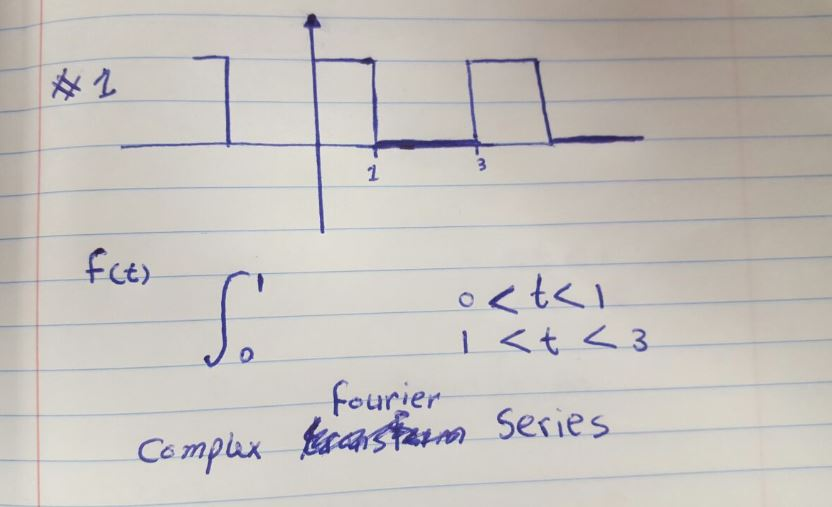 # 1
1 3
f(t) ∫ 1 0 < t < 1
0 1 < t < 3
Fourier
Complex Series